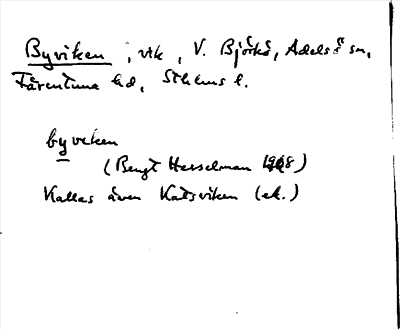 Byviken, vik, V. Björkö, Adelsö sn,
Färentuna hd, Sthlms l.
byviken
(Bengt Hesselman)
Kallas även Kattsviken (ek.)